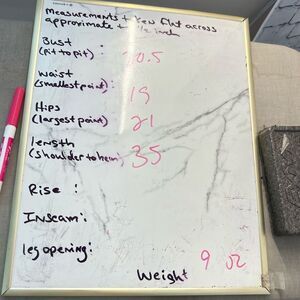 measurements taken flat across
approximate + 1/2 inch
Bust :
(pit to pit) 20.5
waist
(smallest point) 19
Hips
(largest point) 21
length
(shoulder to hem) 35
Rise :
Inseam :
leg opening :
Weight 9 oz